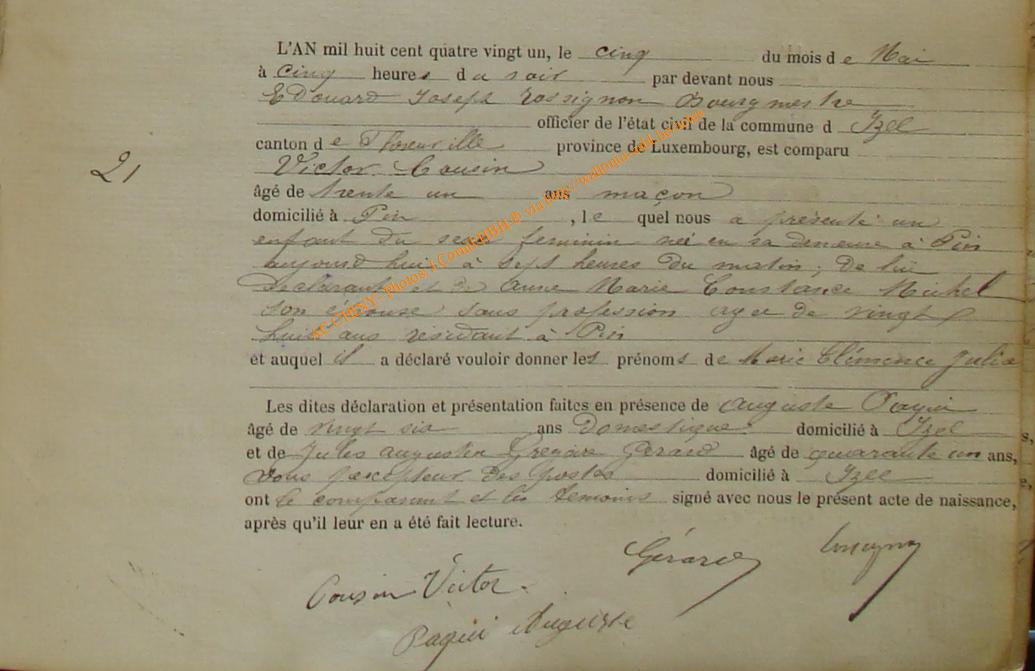 L'AN mil huit cent quatre vingt un, le cinq du mois de Mai
à cinq heures du soir par devant nous
Edouard Joseph Rossignon Bourgmestre
officier de l'état civil de la commune d Izel
canton de Florenville province de Luxembourg, est comparu
21
Victor Cousin
âgé de trente un ans maçon
domicilié à Pin , le quel nous a présenté un
enfant du sexe feminin née en sa demeure à Pin
aujourd'hui à sept heures du matin, de lui
declarant et de Anne Marie Constance Michel
son épouse sans profession agée de vingt
huit ans résidant à Pin
et auquel il a déclaré vouloir donner les prénoms de Marie Clémence Julia
Les dites déclaration et présentation faites en présence de Auguste Paquii
âgé de vingt six ans Domestique domicilié à Izel
et de Jules Augustin Grégoire Gérard âgé de quarante un ans,
Sous percepteur des postes domicilié à Izel
ont le comparant et les temoins signé avec nous le présent acte de naissance,
après qu'il leur en a été fait lecture.
Gérard
Cousin Victor
Paquii Auguste
ACCHESY - Photos J.ComitéBBH @ via http://wallonie.gnd.be/site